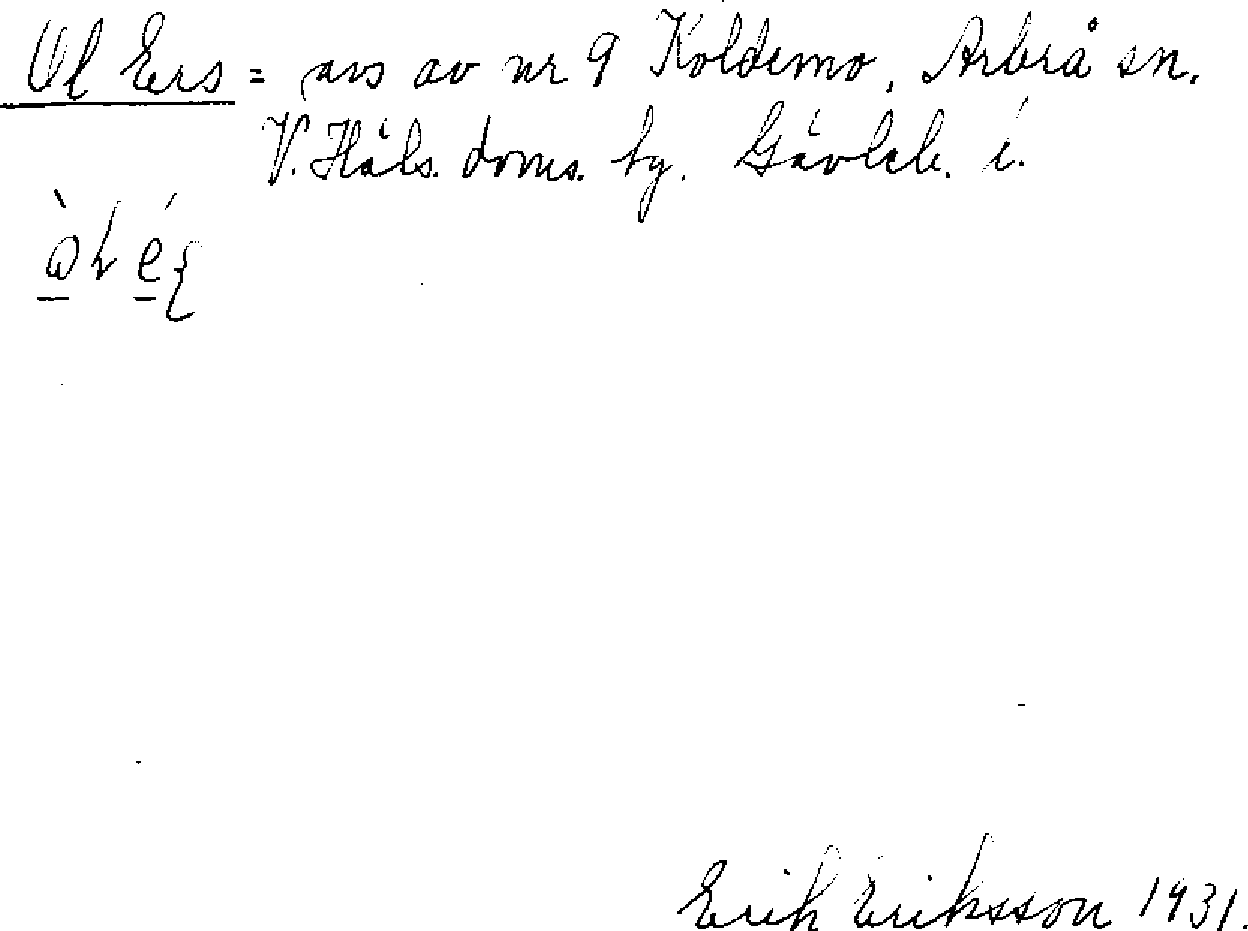 Ol Ers = avs av nr 9 Koldemo, Arbrå sn.
V. Häls. doms. hg. Gävleb. l.
Erik Eriksson 1931.